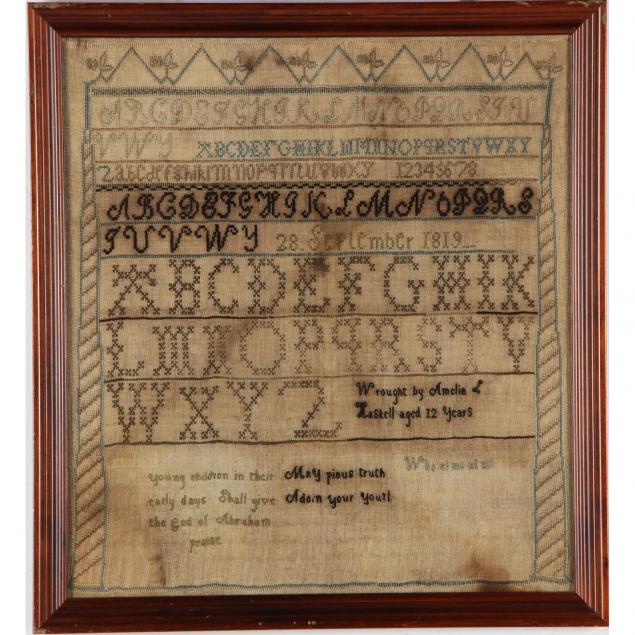 ABCDEFGHIKLMNOPQRSTU
VWY ABCDEFGHIKLMNOPQRSTVWXY
Zabcdefghiklmnopqrstuvwxy 12345678
ABCDEFGHIKLMNOPQRS
TUVWY 28 September 1819
ABCDEFGHIK
LMNOPQRSTV
WXYZ
Wrought by Amelia L
Haskell aged 12 Years
young children in their
early days Shall give
the God of Abraham
praise
May pious truth
Adorn your youth